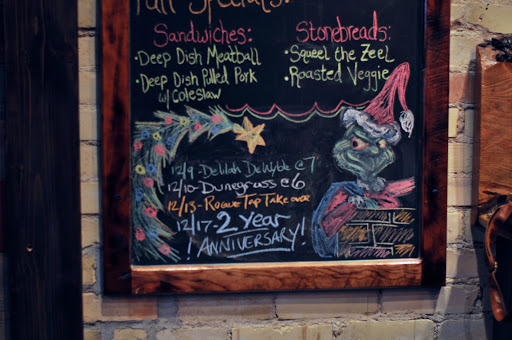 Fall Specials!
Sandwiches:
• Deep Dish Meatball
• Deep Dish Pulled Pork
w/ Coleslaw
Stonebreads:
• Squeel the Zeel
• Roasted Veggie
12/9 - Delilah DeWylde @ 7
12/10 - Dunegrass @ 6
12/13 - Rogue Tap Takeover
12/17 - 2 Year
! Anniversary!